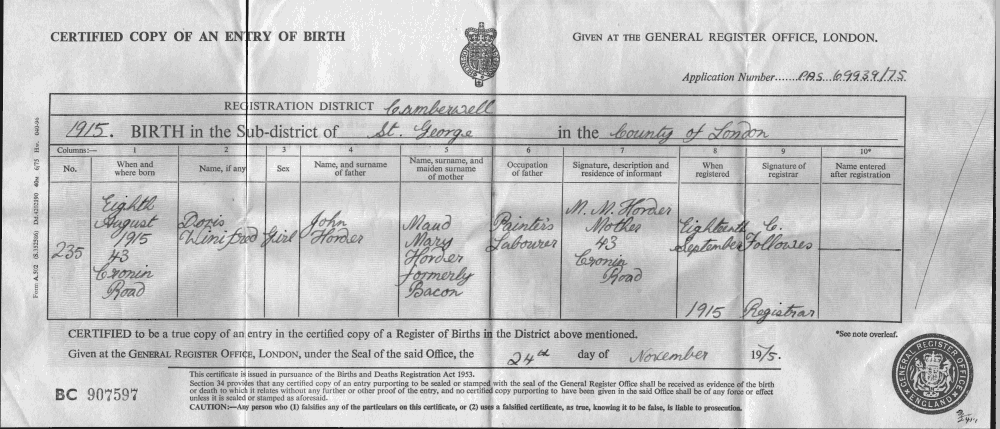 CERTIFIED COPY OF AN ENTRY OF BIRTH
GIVEN AT THE GENERAL REGISTER OFFICE, LONDON.
Application Number......PAS 69939/75
REGISTRATION DISTRICT Camberwell
1915. BIRTH in the Sub-district of St. George in the County of London
Columns:— 1 2 3 4 5 6 7 8 9 10*
No. When and where born Name, if any Sex Name, and surname of father Name, surname, and maiden surname of mother Occupation of father Signature, description and residence of informant When registered Signature of registrar Name entered after registration
235
Eighth
August
1915
43
Cronin
Road
Doris
Winifred
Girl
John
Horder
Maud
Mary
Horder
formerly
Bacon
Painter's
Labourer
M. M. Horder
Mother
43
Cronin
Road
Eighteenth
September
1915
C.
Followes
Registrar
CERTIFIED to be a true copy of an entry in the certified copy of a Register of Births in the District above mentioned.
*See note overleaf.
Given at the GENERAL REGISTER OFFICE, LONDON, under the Seal of the said Office, the 24th day of November 1975.
BC 907597
This certificate is issued in pursuance of the Births and Deaths Registration Act 1953.
Section 34 provides that any certified copy of an entry purporting to be sealed or stamped with the seal of the General Register Office shall be received as evidence of the birth
or death to which it relates without any further or other proof of the entry, and no certified copy purporting to have been given in the said Office shall be of any force or effect
unless it is sealed or stamped as aforesaid.
CAUTION:—Any person who (1) falsifies any of the particulars on this certificate, or (2) uses a falsified certificate, as true, knowing it to be false, is liable to prosecution.
GENERAL REGISTER OFFICE
ENGLAND